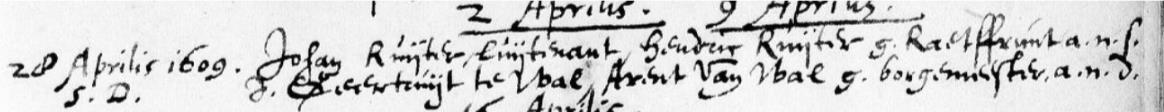 2 Aprilis. 9 Aprilis.
28 Aprilis 1609. Johan Ruijter Luijtenant, Hendric Ruijter g. Raetffrunt a. n. s.
s. D. J. Geertruijt te Wal, Arent van Wal g. borgemeister. a. n. d.
16 Aprilis